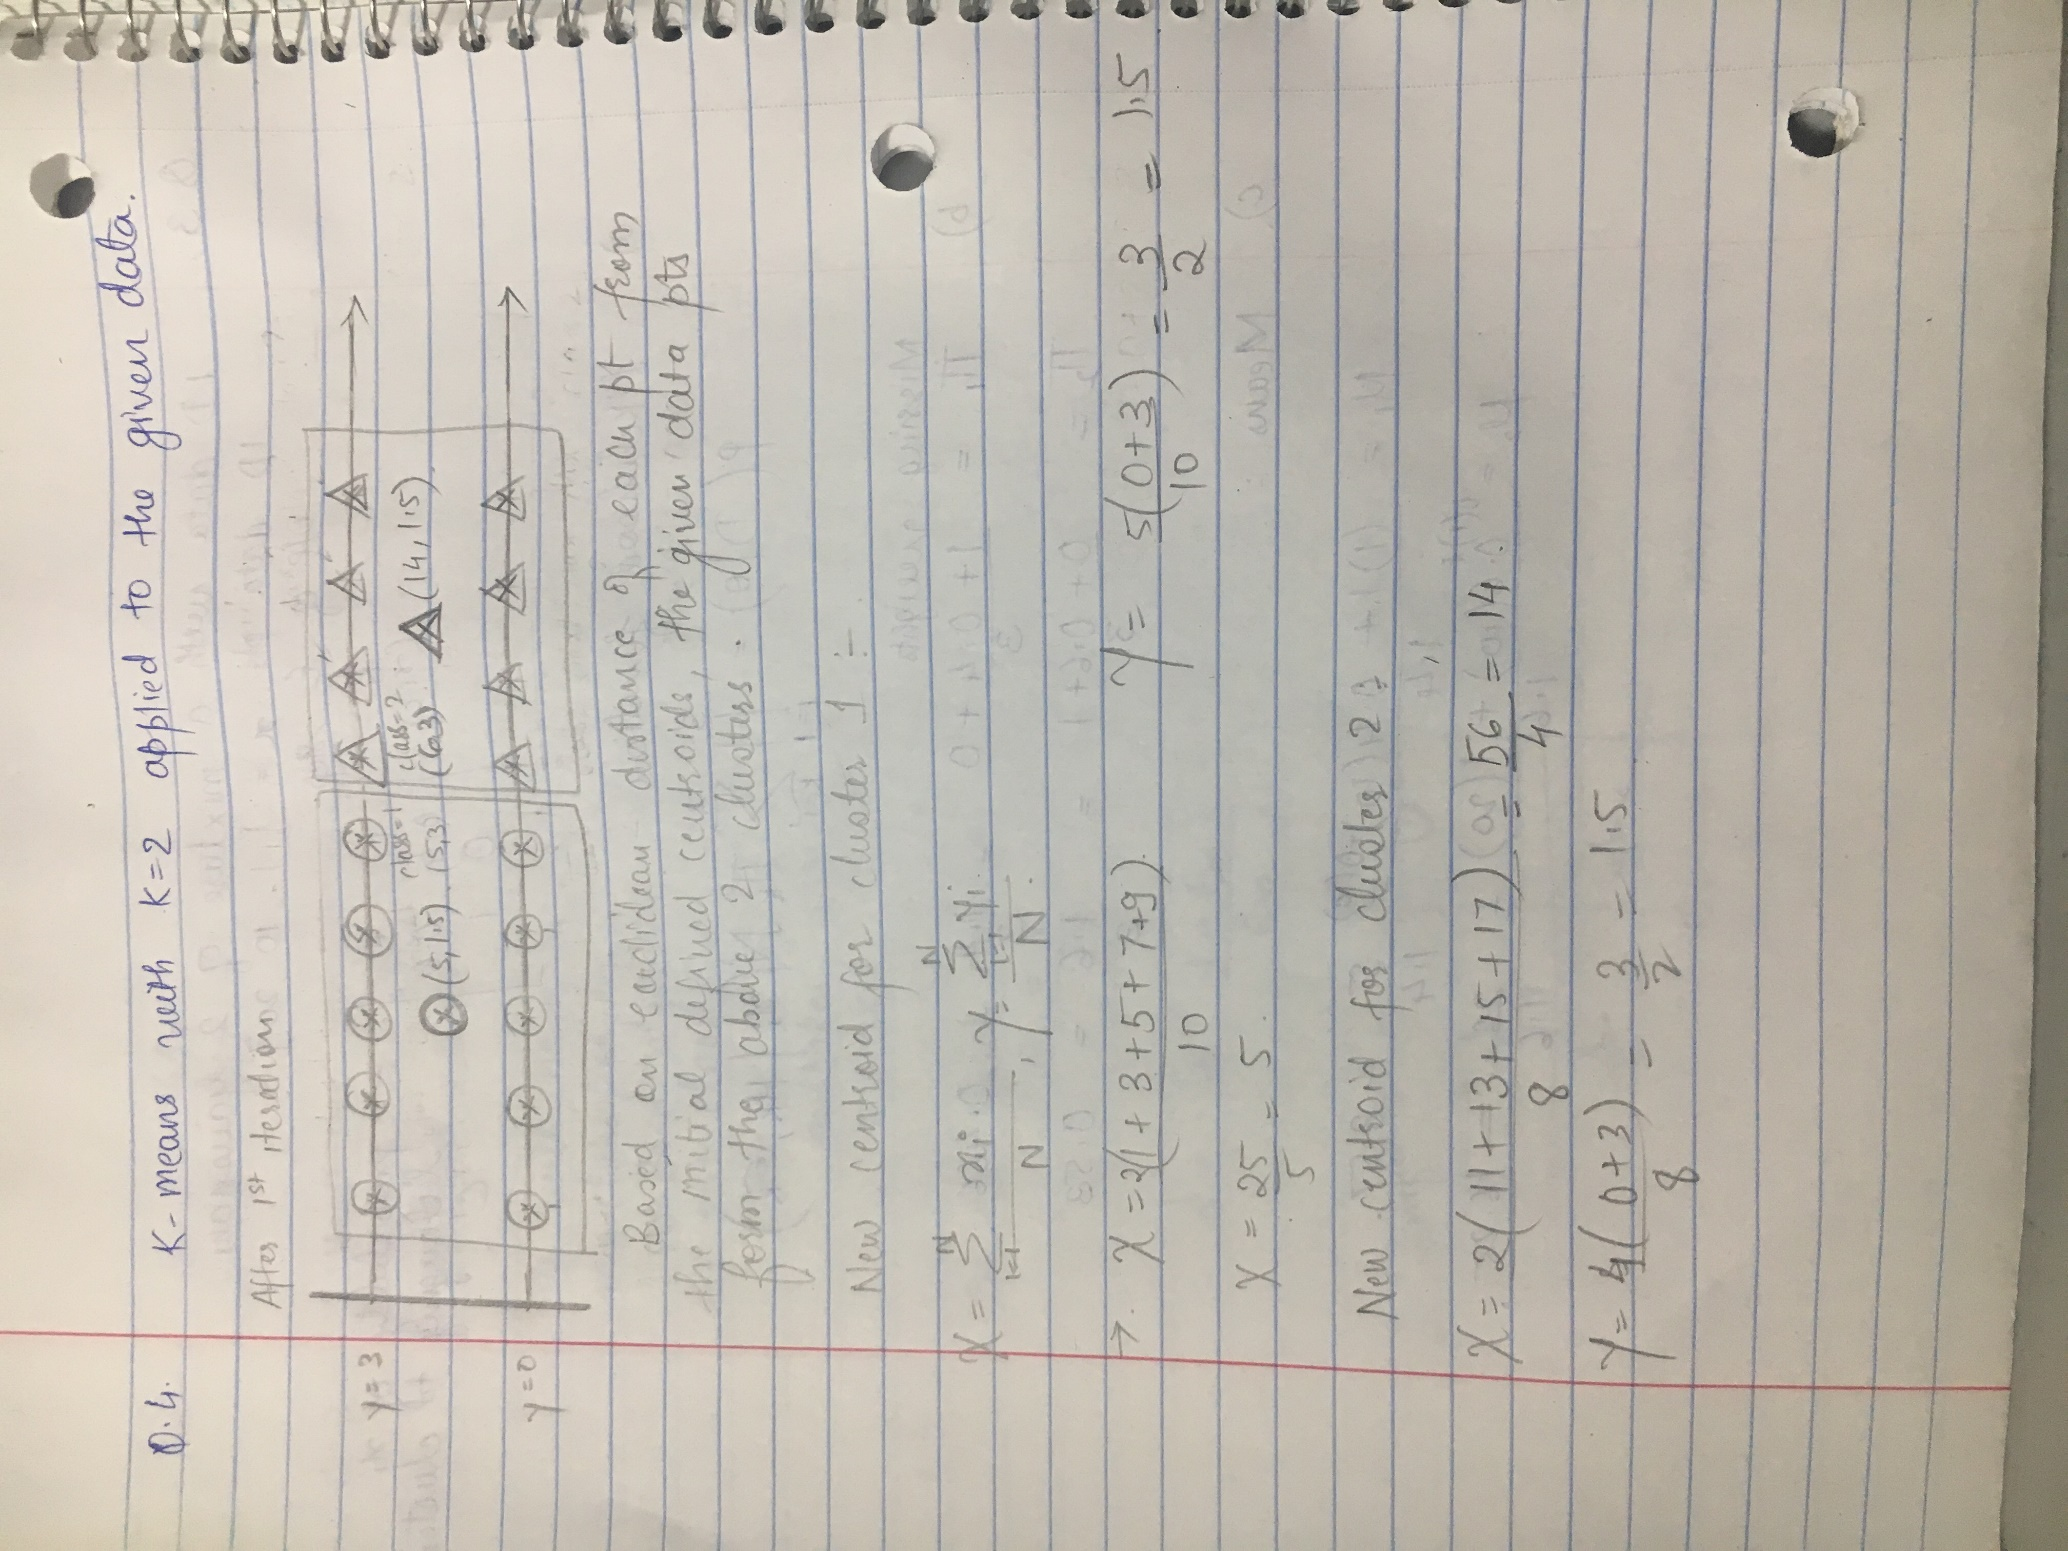 Q.4. K-means with K=2 applied to the given data.
After 1st iteration
y = 3
class=1 class=2
(5,1.5) (5,3) (14,1.5)
y = 0
Based on euclidean distance of each pt from
the initial defined centroids, the given data pts
form the above 2 clusters.
New centroid for cluster 1 :-
X = N Σ i=1 xi / N , Y = N Σ i=1 yi / N.
→. X = 2(1 + 3 + 5 + 7 + 9) / 10 Y = 5(0+3) / 10 = 3/2 = 1.5
X = 25/5 = 5.
New centroid for cluster 2
X = 2(11 + 13 + 15 + 17) / 8 = 56/4 = 14.
Y = 4(0+3) / 8 = 3/2 = 1.5